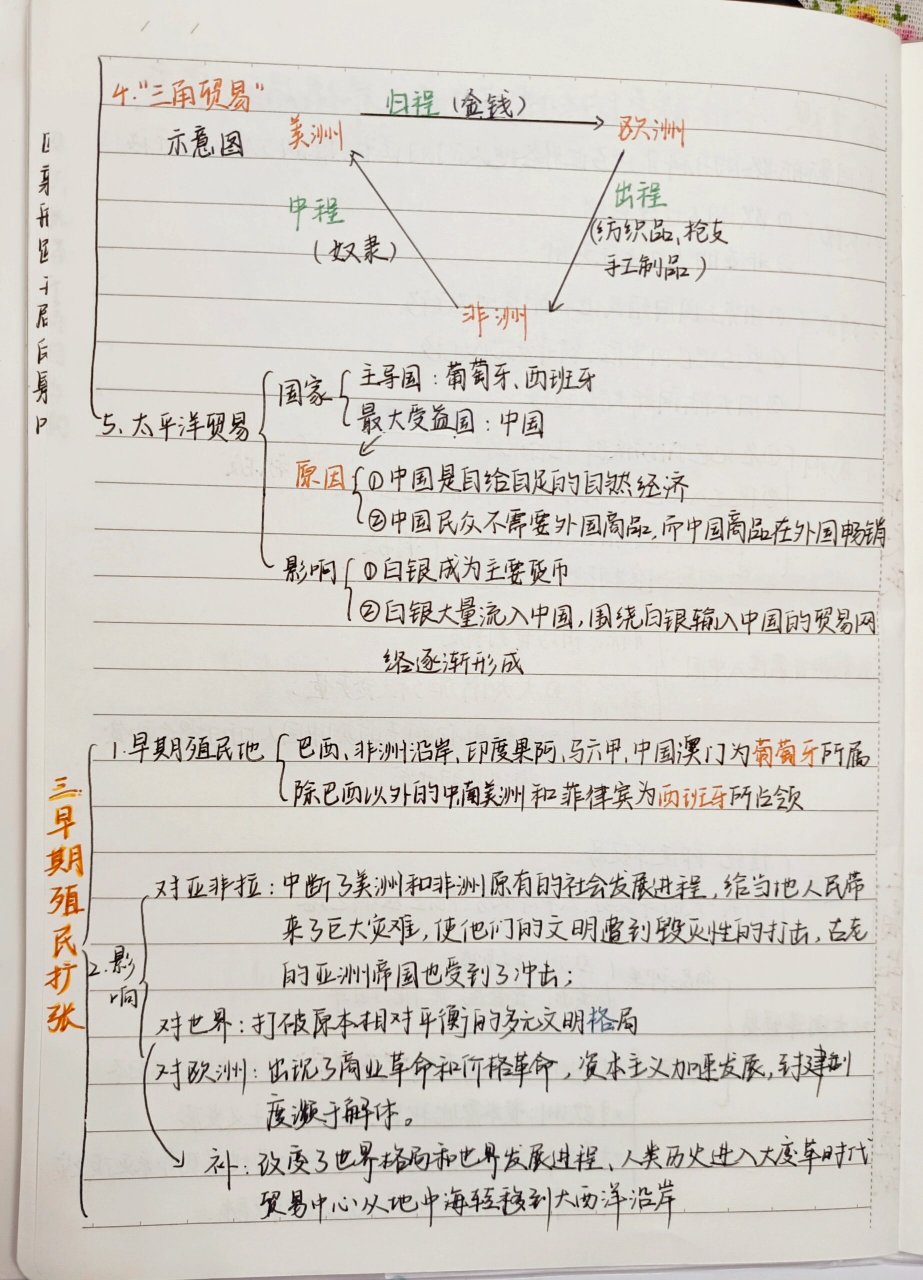 4."三角贸易"
示意图
归程(金钱)
美洲
欧洲
中程
(奴隶)
出程
(纺织品、枪支
手工制品)
非洲
5、太平洋贸易
国家
主导国:葡萄牙、西班牙
最大受益国:中国
原因
①中国是自给自足的自然经济
②中国民众不需要外国商品,而中国商品在外国畅销
影响
①白银成为主要货币
②白银大量流入中国,围绕白银输入中国的贸易网
络逐渐形成
三.早期殖民扩张
1.早期殖民地
巴西、非洲沿岸、印度果阿、马六甲、中国澳门为葡萄牙所属
除巴西以外的中南美洲和菲律宾为西班牙所占领
2.影响
对亚非拉:中断了美洲和非洲原有的社会发展进程,给当地人民带
来了巨大灾难,使他们的文明遭到毁灭性的打击,古老
的亚洲帝国也受到了冲击;
对世界:打破原本相对平衡的多元文明格局
对欧洲:出现了商业革命和价格革命,资本主义加速发展,封建制
度濒于解体。
补:改变了世界格局和世界发展进程、人类历史进入大变革时代
贸易中心从地中海转移到大西洋沿岸